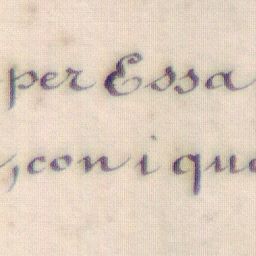 per Essa
, con i qua